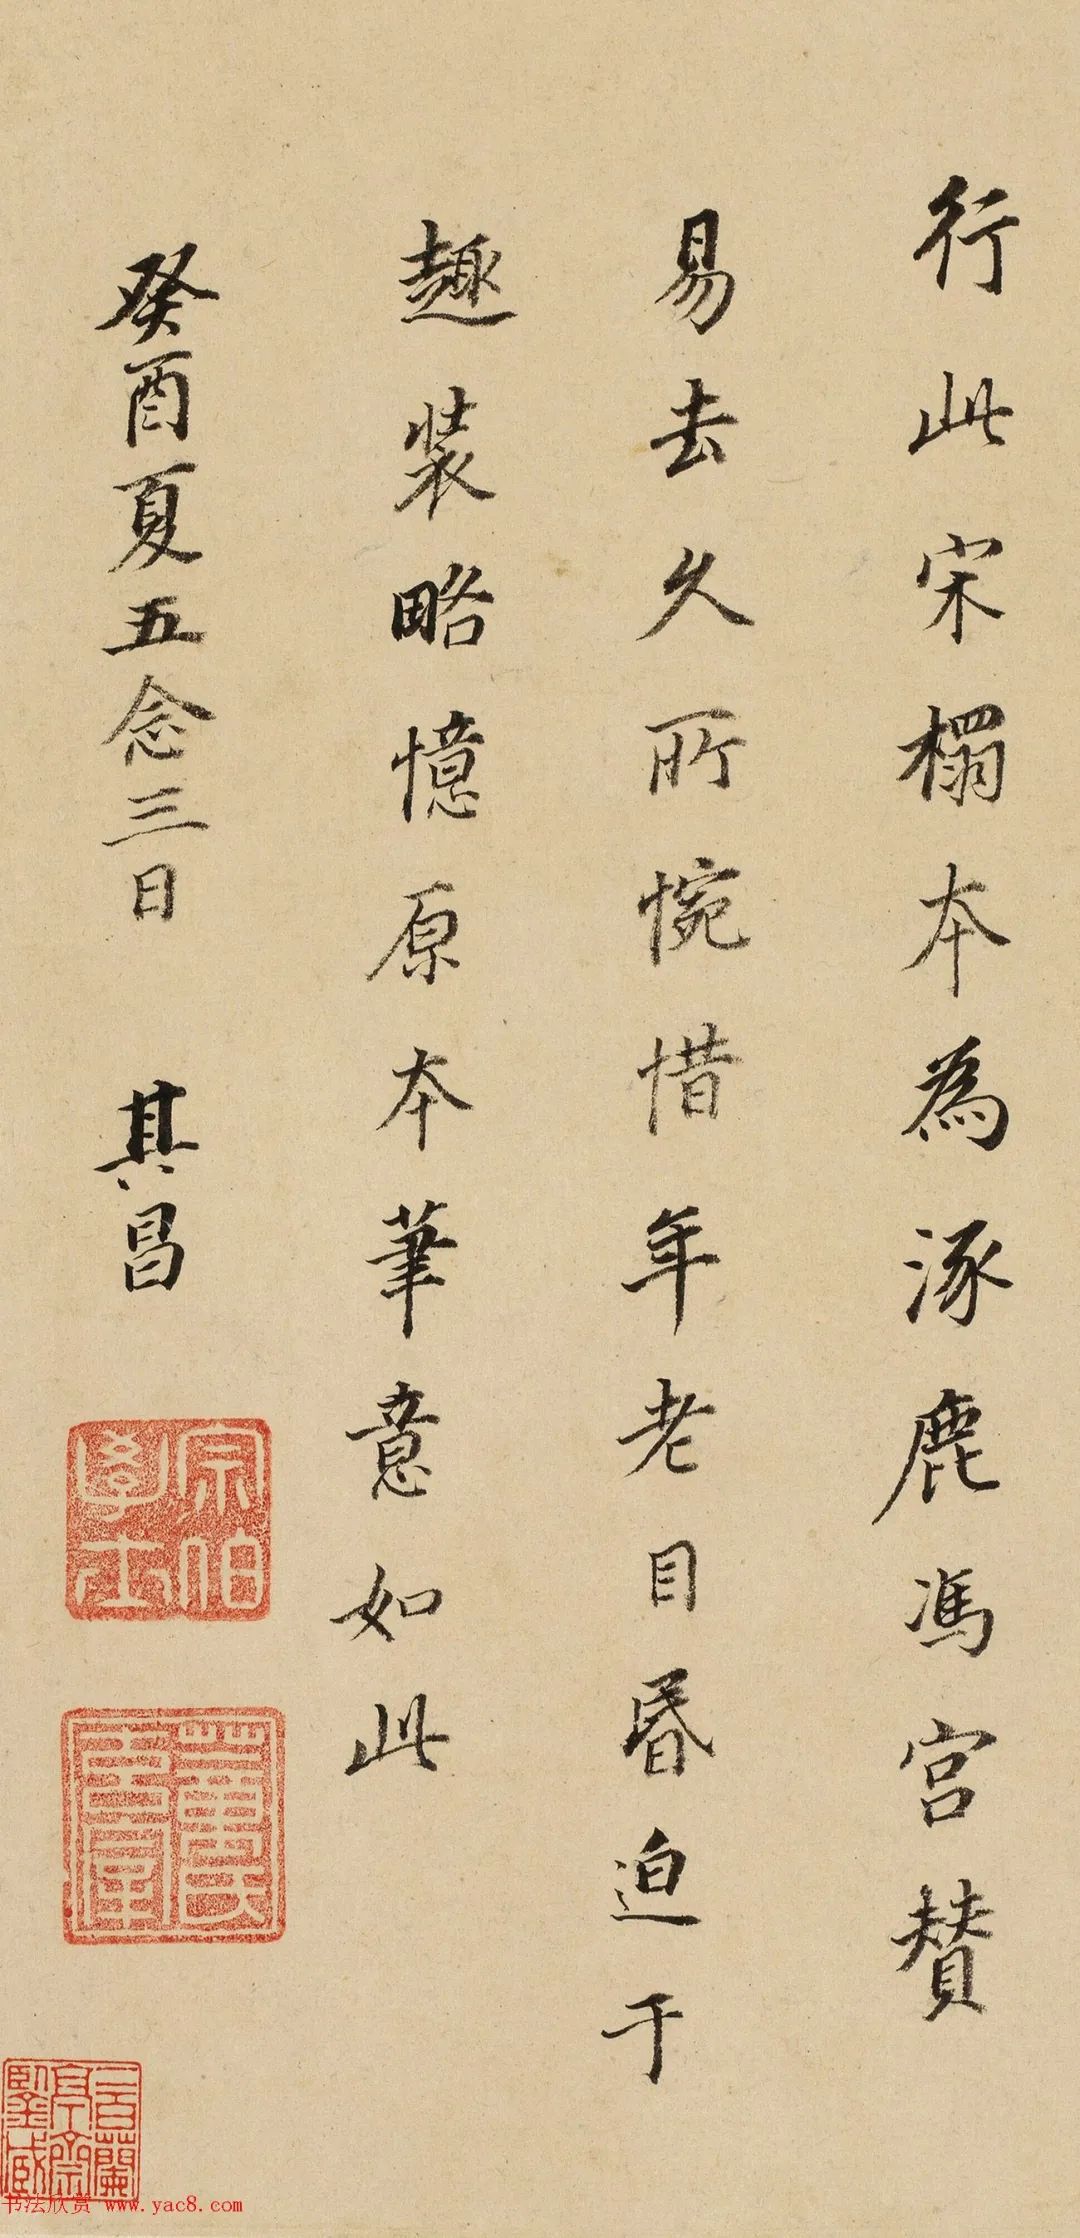 行此宋榻本為涿鹿馮宮贊
易去久所惋惜年老目昬迫于
趣装略憶原本筆意如此
癸酉夏五念三日 其昌
宗伯學士
三百蘭亭齋鑒藏
书法欣赏 www.yac8.com